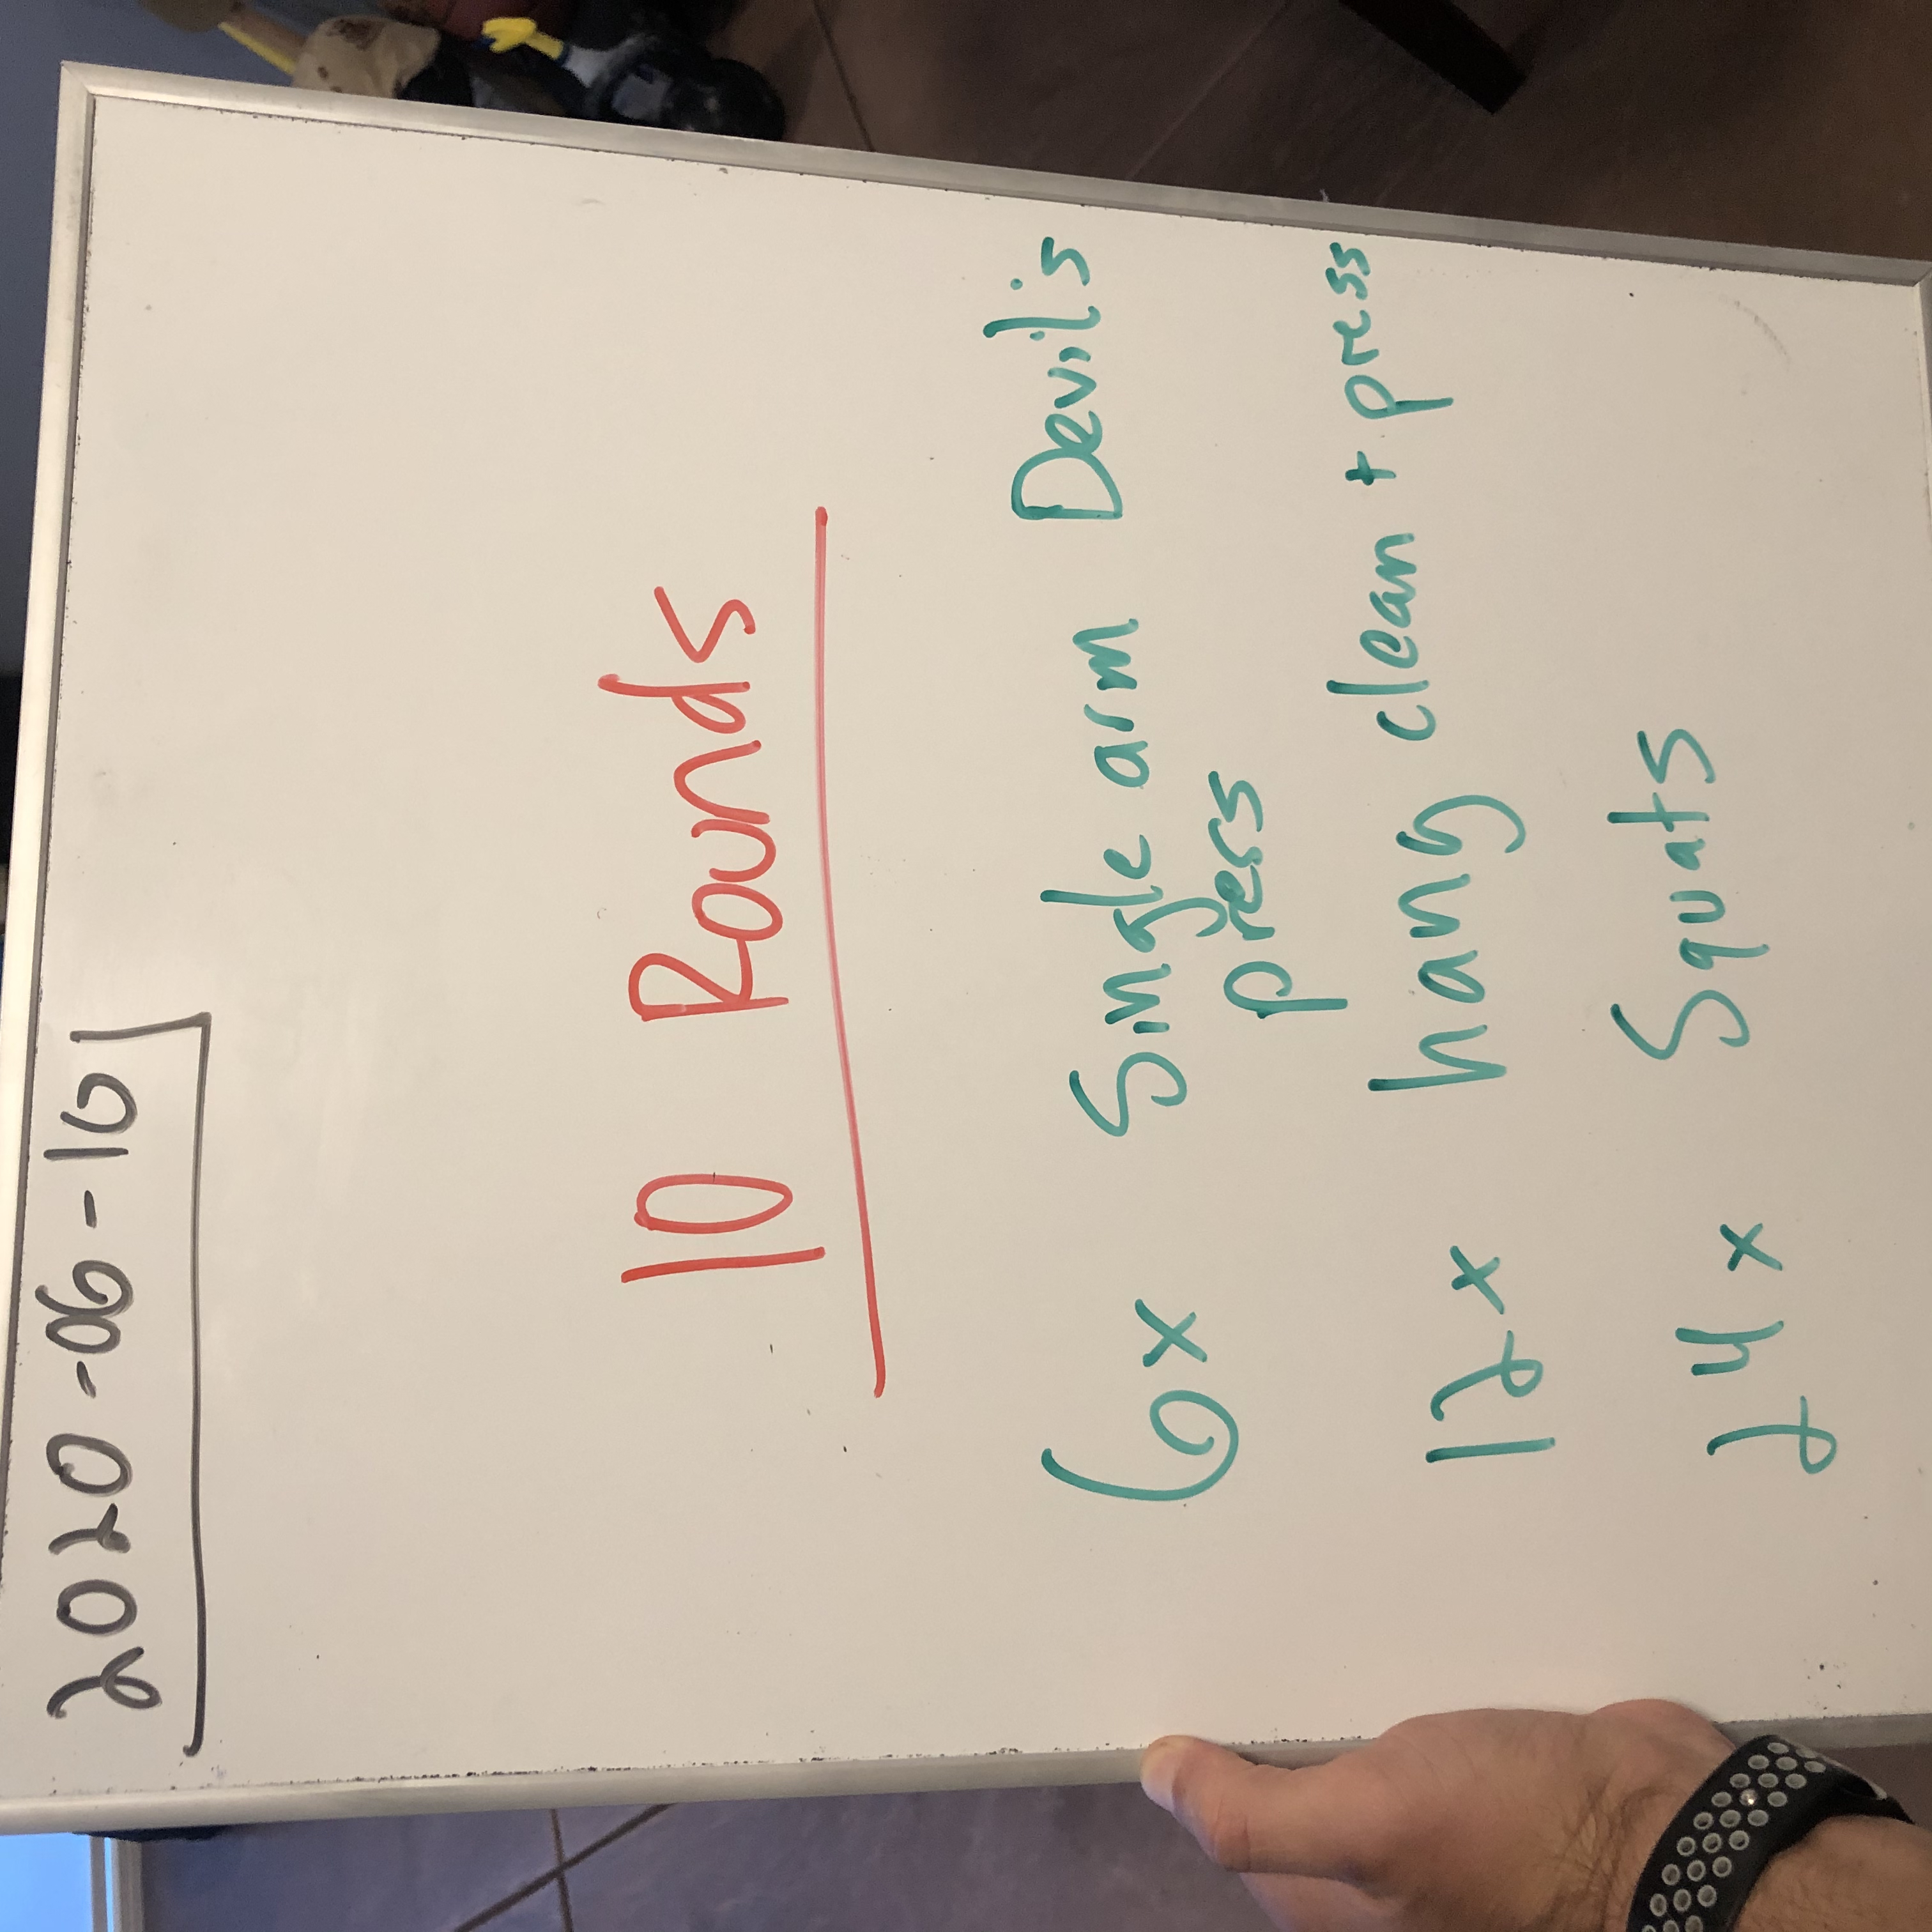 2020-06-10
10 Rounds
6x Single arm Devil's
press
12x hang clean + press
24x Squats